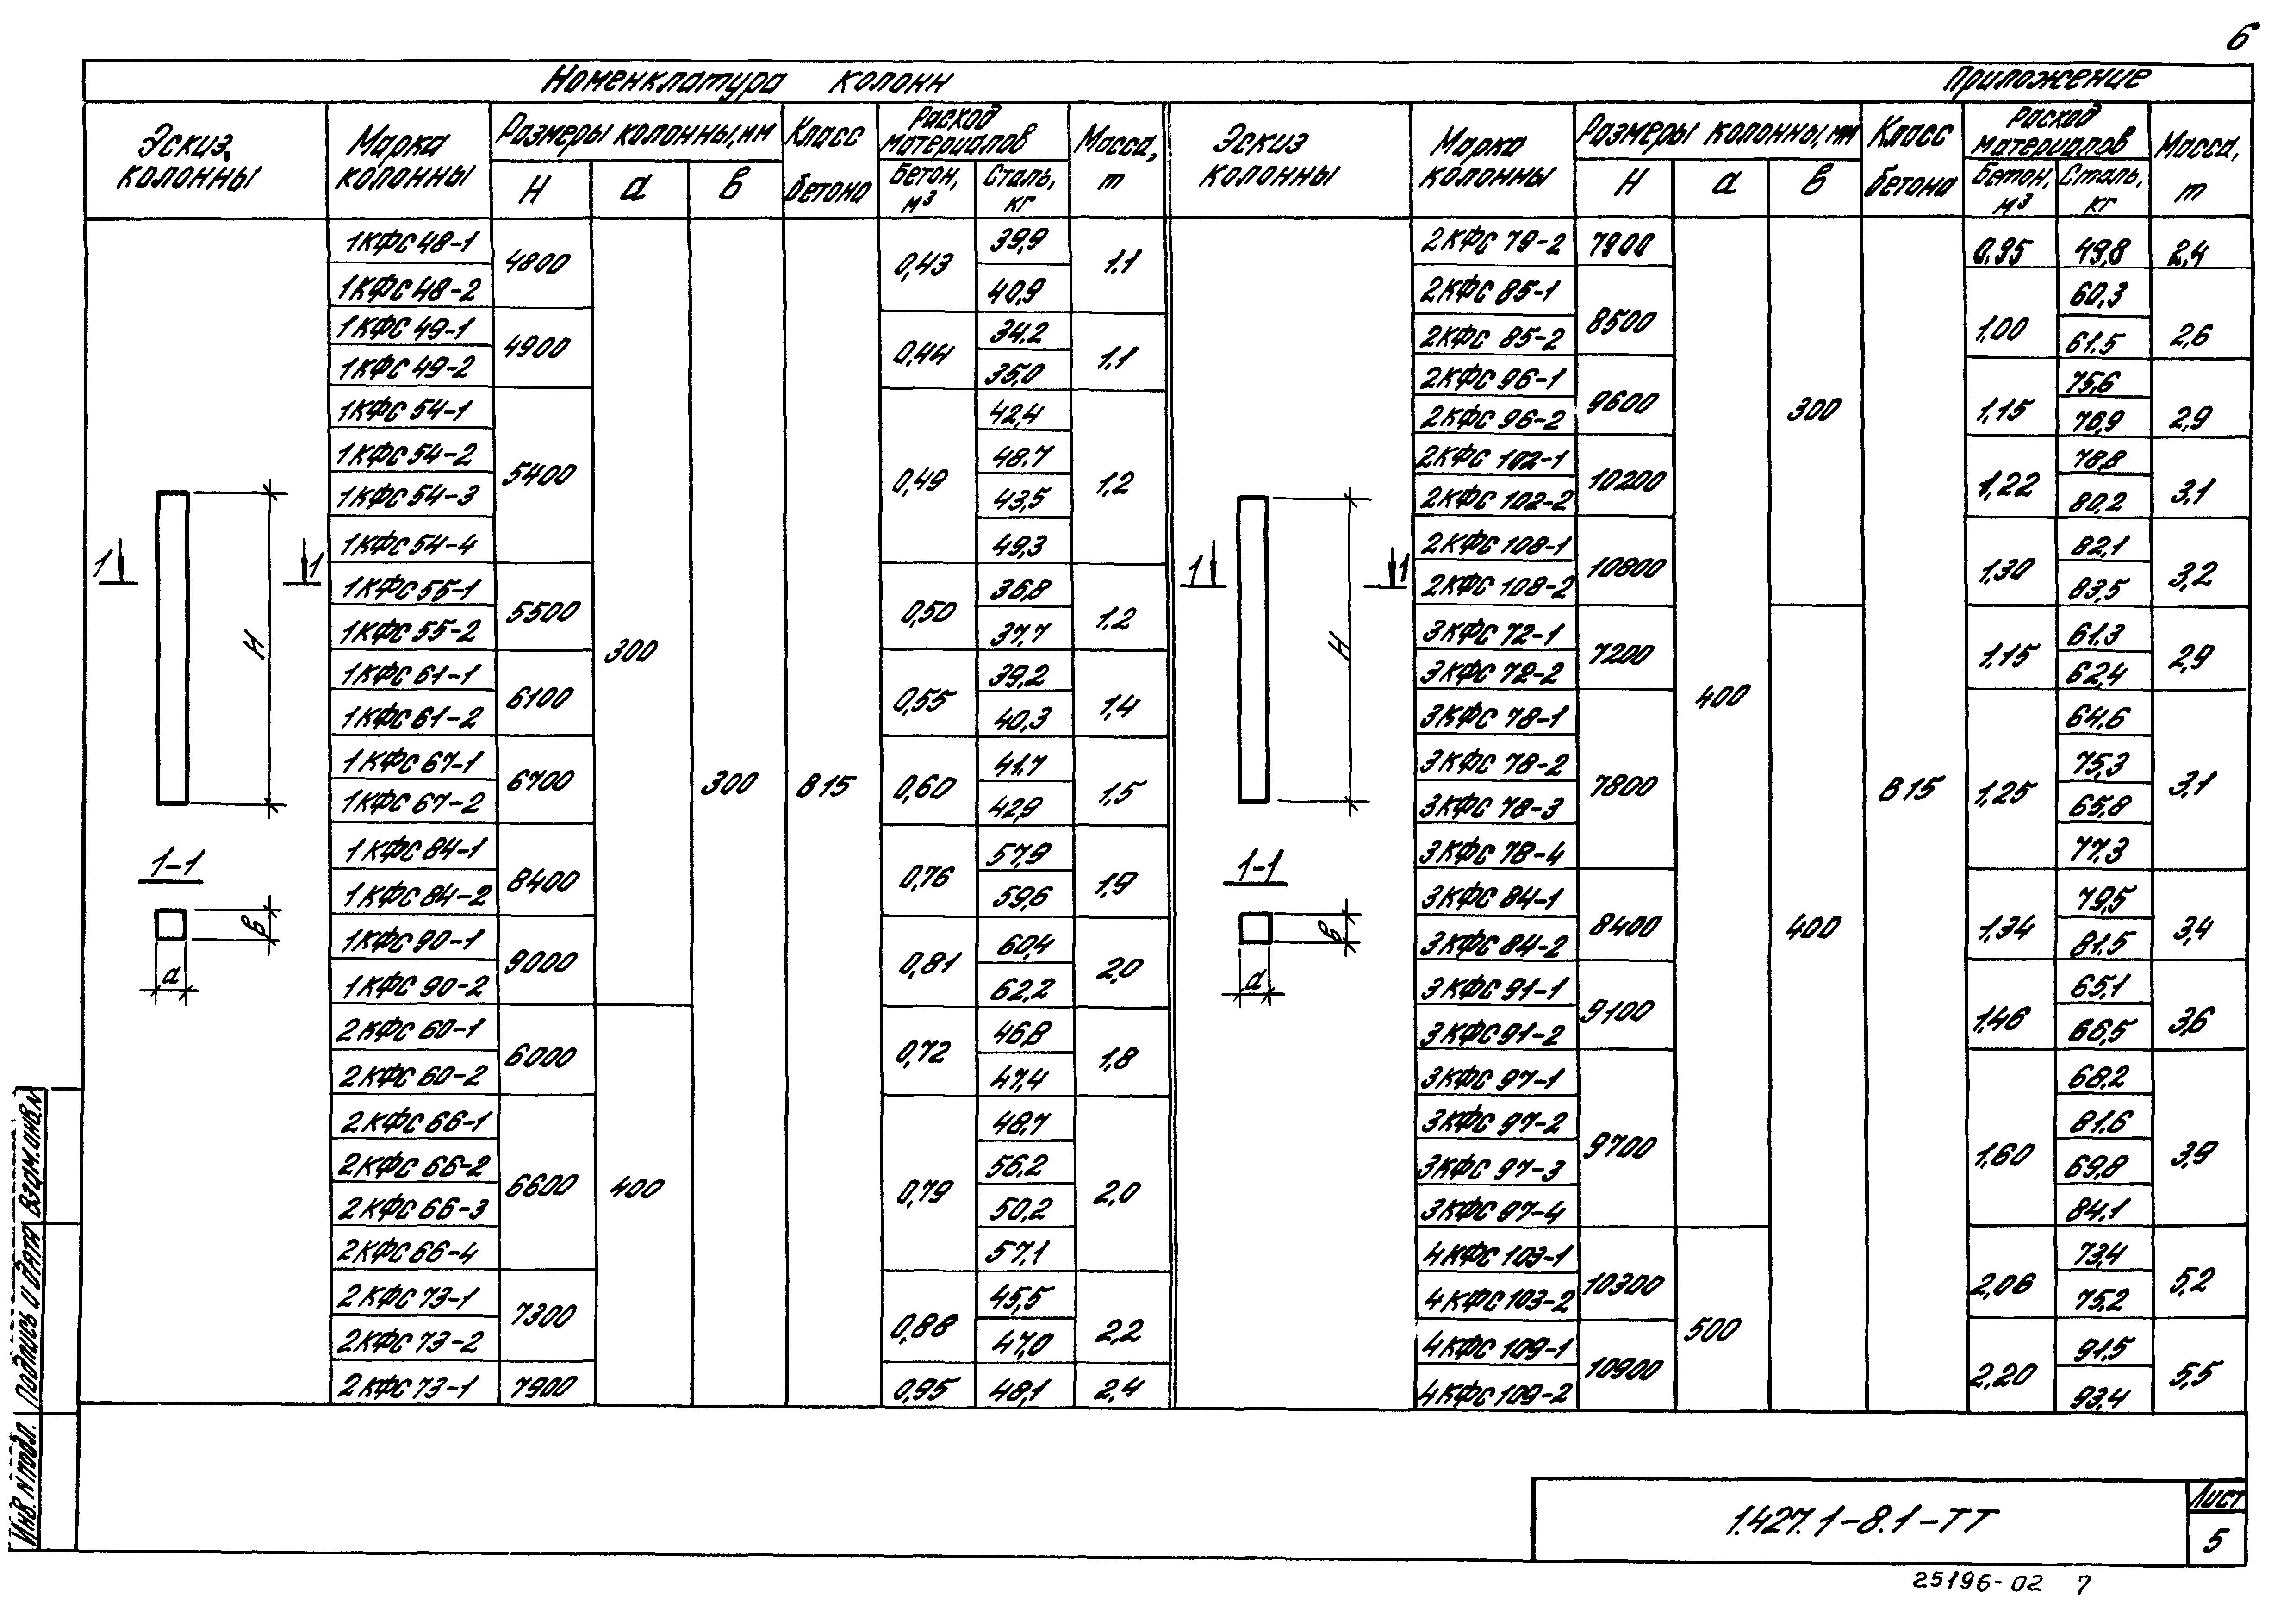 6
Номенклатура колонн
Приложение
Эскиз колонны
Марка колонны
Размеры колонны, мм
Н а в
Класс бетона
Расход материалов
Бетон, м³
Сталь, кг
Масса, т
1КФС48-1 4800 300 300 В15 0,43 39,9 1,1
1КФС48-2 40,9
1КФС49-1 4900 0,44 34,2 1,1
1КФС49-2 35,0
1КФС54-1 5400 0,49 42,4 1,2
1КФС54-2 48,7
1КФС54-3 43,5
1КФС54-4 49,3
1КФС55-1 5500 0,50 36,8 1,2
1КФС55-2 37,7
1КФС61-1 6100 0,55 39,2 1,4
1КФС61-2 40,3
1КФС67-1 6700 0,60 41,7 1,5
1КФС67-2 42,9
1КФС84-1 8400 0,76 57,9 1,9
1КФС84-2 59,6
1КФС90-1 9000 0,81 60,4 2,0
1КФС90-2 62,2
2КФС60-1 6000 400 0,72 46,8 1,8
2КФС60-2 47,4
2КФС66-1 6600 0,79 48,7 2,0
2КФС66-2 56,2
2КФС66-3 50,2
2КФС66-4 57,1
2КФС73-1 7300 0,88 45,5 2,2
2КФС73-2 47,0
2КФС73-1 7900 0,95 48,1 2,4
1 1
Н
1-1
в
а
Эскиз колонны
Марка колонны
Размеры колонны, мм
Н а в
Класс бетона
Расход материалов
Бетон, м³
Сталь, кг
Масса, т
2КФС79-2 7900 400 300 В15 0,95 49,8 2,4
2КФС85-1 8500 1,00 60,3 2,6
2КФС85-2 61,5
2КФС96-1 9600 1,15 75,6 2,9
2КФС96-2 76,9
2КФС102-1 10200 1,22 78,8 3,1
2КФС102-2 80,2
2КФС108-1 10800 1,30 82,1 3,2
2КФС108-2 83,5
3КФС72-1 7200 400 1,15 61,3 2,9
3КФС72-2 62,4
3КФС78-1 7800 1,25 64,6 3,1
3КФС78-2 75,3
3КФС78-3 65,8
3КФС78-4 77,3
3КФС84-1 8400 1,34 79,5 3,4
3КФС84-2 81,5
3КФС91-1 9100 1,46 65,1 3,6
3КФС91-2 66,5
3КФС97-1 9700 1,60 68,2 3,9
3КФС97-2 81,6
3КФС97-3 69,8
3КФС97-4 84,1
4КФС103-1 10300 500 2,06 73,4 5,2
4КФС103-2 75,2
4КФС109-1 10900 2,20 91,5 5,5
4КФС109-2 93,4
1 1
Н
1-1
в
а
Инв. N подл. Подпись и дата Взам. инв. N
1.427.1-8.1-ТТ
Лист
5
25196-02 7